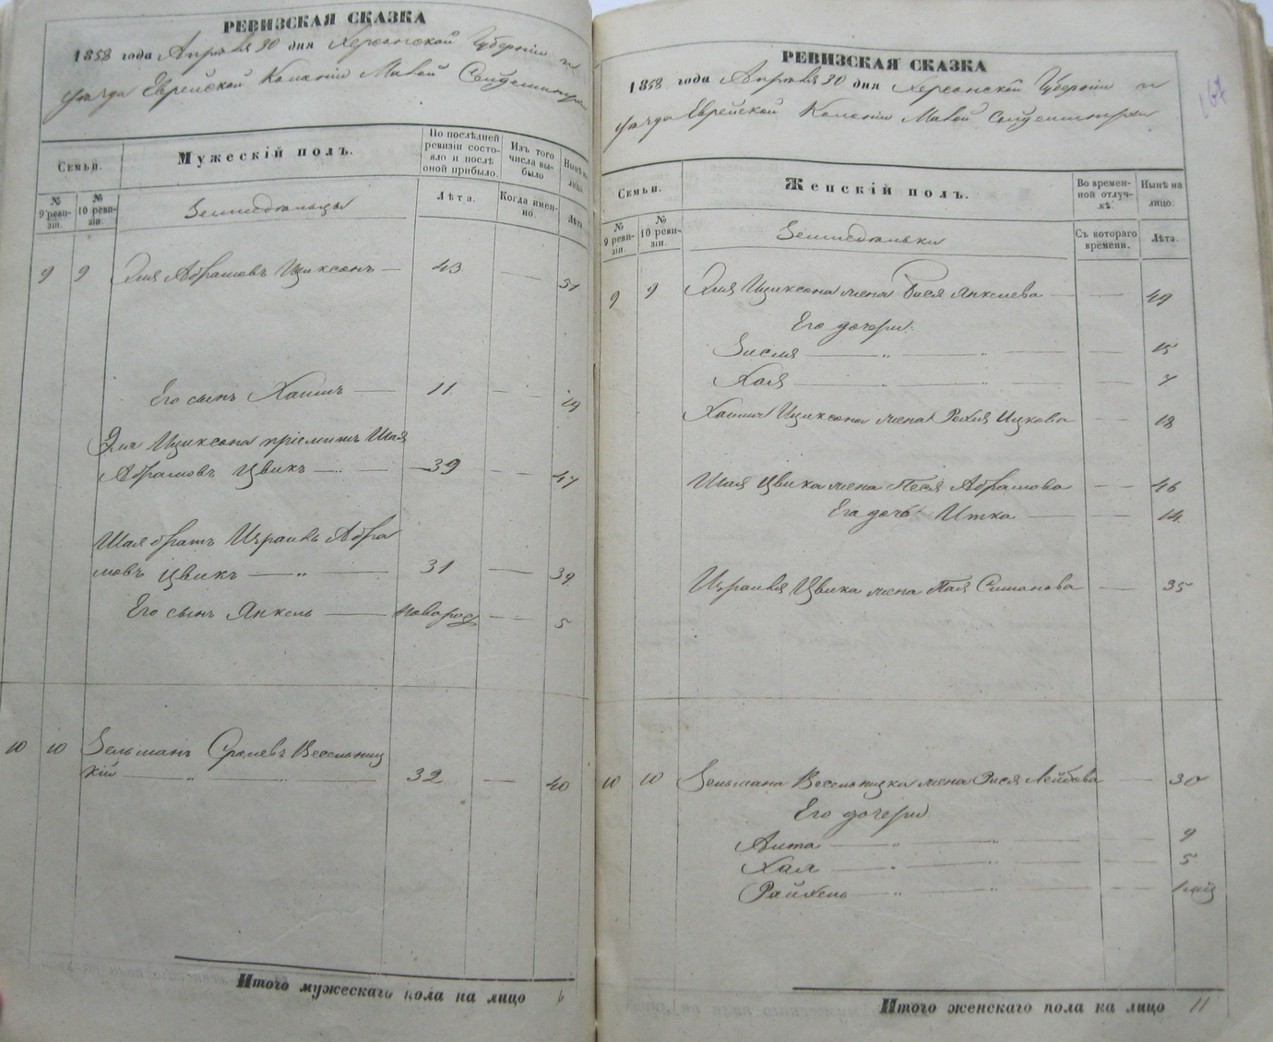 РЕВИЗСКАЯ СКАЗКА
1858 года Апреля 30 дня Херсонской Губерніи и
уезда Еврейской Колоніи Малой Сейдеминухи
Семьи.
Мужескій полъ.
По послѣдней ревизіи состояло и послѣ оной прибыло.
Изъ того числа выбыло
Нынѣ на лицо.
№ 9 ревизіи.
№ 10 ревизіи.
Земледельцы
Лѣта.
Когда именно.
Лѣта
9 9 Эля Абрамовъ Ициксонъ — 43 — 51
Его сынъ Хаимъ — 11 — 19
Эля Ициксона пріемышъ Шая
Абрамовъ Цвикъ — 39 — 47
Шая братъ Израиль Абра
мовъ Цвикъ — „ — 31 — 39
Его сынъ Янкель — новорож — 5
10 10 Зельманъ Сролевъ Весельниц
кій — „ — „ — 32 — 40
Итого мужескаго пола на лицо 6
РЕВИЗСКАЯ СКАЗКА
1858 года Апреля 30 дня Херсонской Губерніи и
уезда Еврейской Колоніи Малой Сейдеминухи
Семьи.
Женскій полъ.
Во временной отлучкѣ.
Нынѣ на лицо.
№ 9 ревизіи.
№ 10 ревизіи.
Земледельки
Съ котораго времени.
Лѣта.
9 9 Эля Ициксона жена Бася Янкелева — 49
Его дочери
Зисля — „ — „ — 15
Хая — „ — „ — 7
Хаима Ициксона жена Рехля Ицкова — 18
Шая Цвика жена Песя Абрамова — 46
Его дочь Итка — 14
Израиля Цвика жена Пая Симонова — 35
10 10 Зельмана Весельницка жена Рися Лейбова — 30
Его дочери
— „ — „ — 9
Хая — „ — „ — 5
Райхель — „ — „ —
Итого женскаго пола на лицо 11